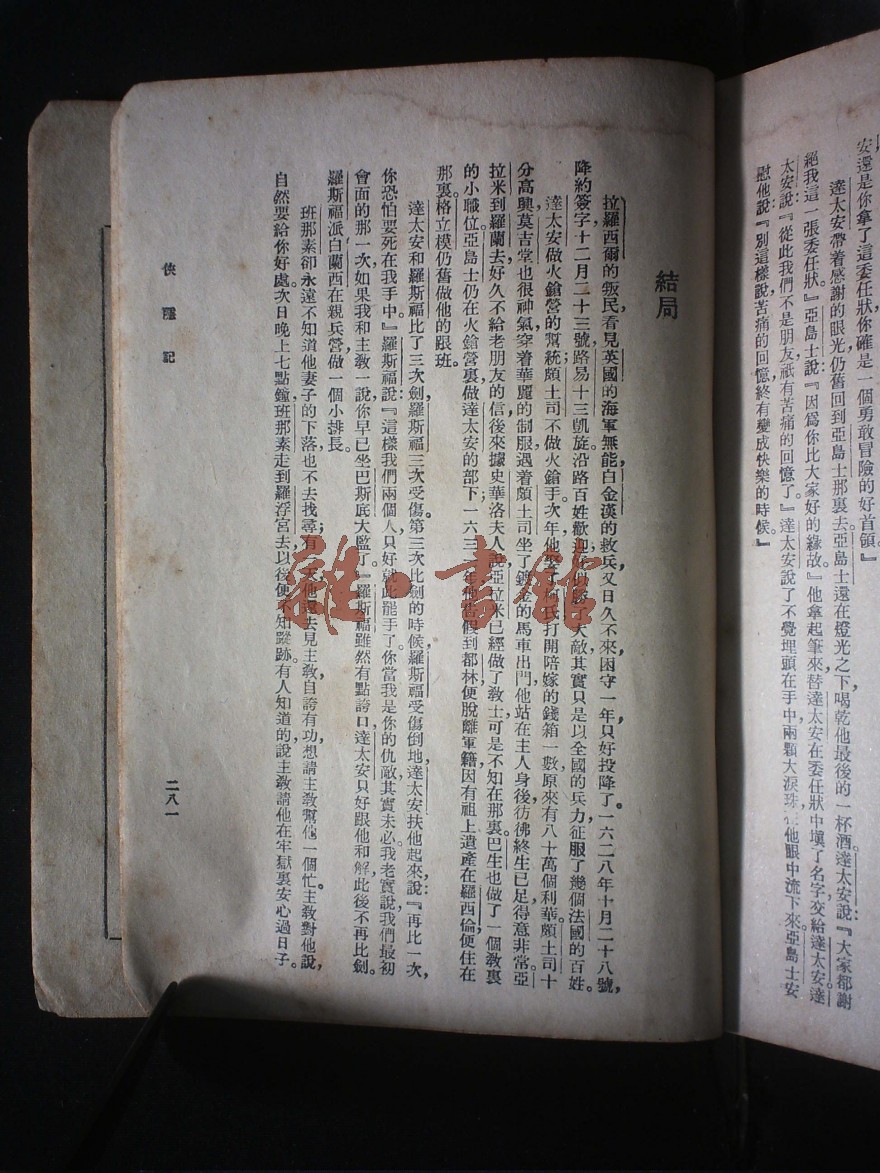 安還是你拿了這委任狀你確是一個勇敢冒險的好首領。』
達太安帶着感謝的眼光仍舊回到亞島士那裏去。亞島士還在燈光之下喝乾他最後的一杯酒。達太安說：『大家都謝
絕我這一張委任狀。』亞島士說：『因爲你比大家好的緣故。』他拿起筆來替達太安在委任狀中填了名字交給達太安。達
太安說：『從此我們不是朋友，祇有苦痛的回憶了。』達太安說了不覺埋頭在手中，兩顆大淚珠從他眼中流下來。亞島士安
慰他說：『別這樣說，苦痛的回憶，終有變成快樂的時候。』
結局
拉羅西爾的叛民，看見英國的海軍無能，白金漢的救兵，又日久不來，困守一年，只好投降了。一六二八年十月二十八號，
降約簽字。十二月二十三號，路易十三凱旋，沿路百姓歡迎，大敵，其實只是以全國的兵力，征服了幾個法國的百姓。
達太安做火鎗營的幫統。頗土司不做火鎗手，次年他娶了氏，打開陪嫁的錢箱一數，原來有八十萬個利華。頗土司十
分高興。莫吉堂也很神氣，穿着華麗的制服，遇着頗土司坐了鍍金的馬車出門，他站在主人身後，彷彿終生已足，得意非常。亞
拉米到羅蘭去，好久不給老朋友的信，後來據史華洛夫人說，亞拉米已經做了教士，可是不知在那裏。巴生也做了一個教裏
的小職位。亞島士仍在火鎗營裏，做達太安的部下。一六三年他告假到都林，便脫離軍籍，因有祖上遺產在羅西倫，便住在
那裏。格立模仍舊做他的跟班。
達太安和羅斯福比了三次劍，羅斯福三次受傷。第三次比劍的時候，羅斯福受傷倒地，達太安扶他起來，說：『再比一次，
你恐怕要死在我手中。』羅斯福說：『這樣我們兩個人，只好就此罷手了。你當我是你的仇敵，其實未必。我老實說，我們最初
會面的那一次，如果我和主教一說，你早已坐巴斯底大監了。』羅斯福雖然有點誇口，達太安只好跟他和解，此後不再比劍。
羅斯福派白蘭西在親兵營做一個小排長。
班那素卻永遠不知道他妻子的下落，也不去找尋；有一天他還去見主教，自誇有功，想請主教幫他一個忙。主教對他說，
自然要給你好處。次日晚上七點鐘，班那素走到羅浮宮去，以後便不知蹤跡。有人知道的說，主教請他在牢獄裏安心過日子。
俠隱記
二八一
雜書館